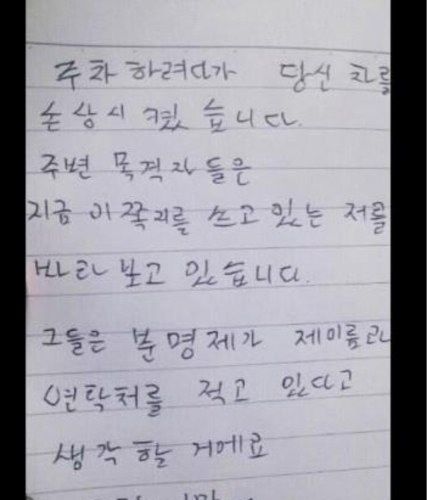 주차 하려다가 당신 차를
손상시 켰 습니다.
주변 목격자 들은
지금 이 쪽지를 쓰고 있는 저를
바라 보고 있습니다.
그들은 분명 제가 제이름과
연락처를 적고 있다고
생각 할 거에요